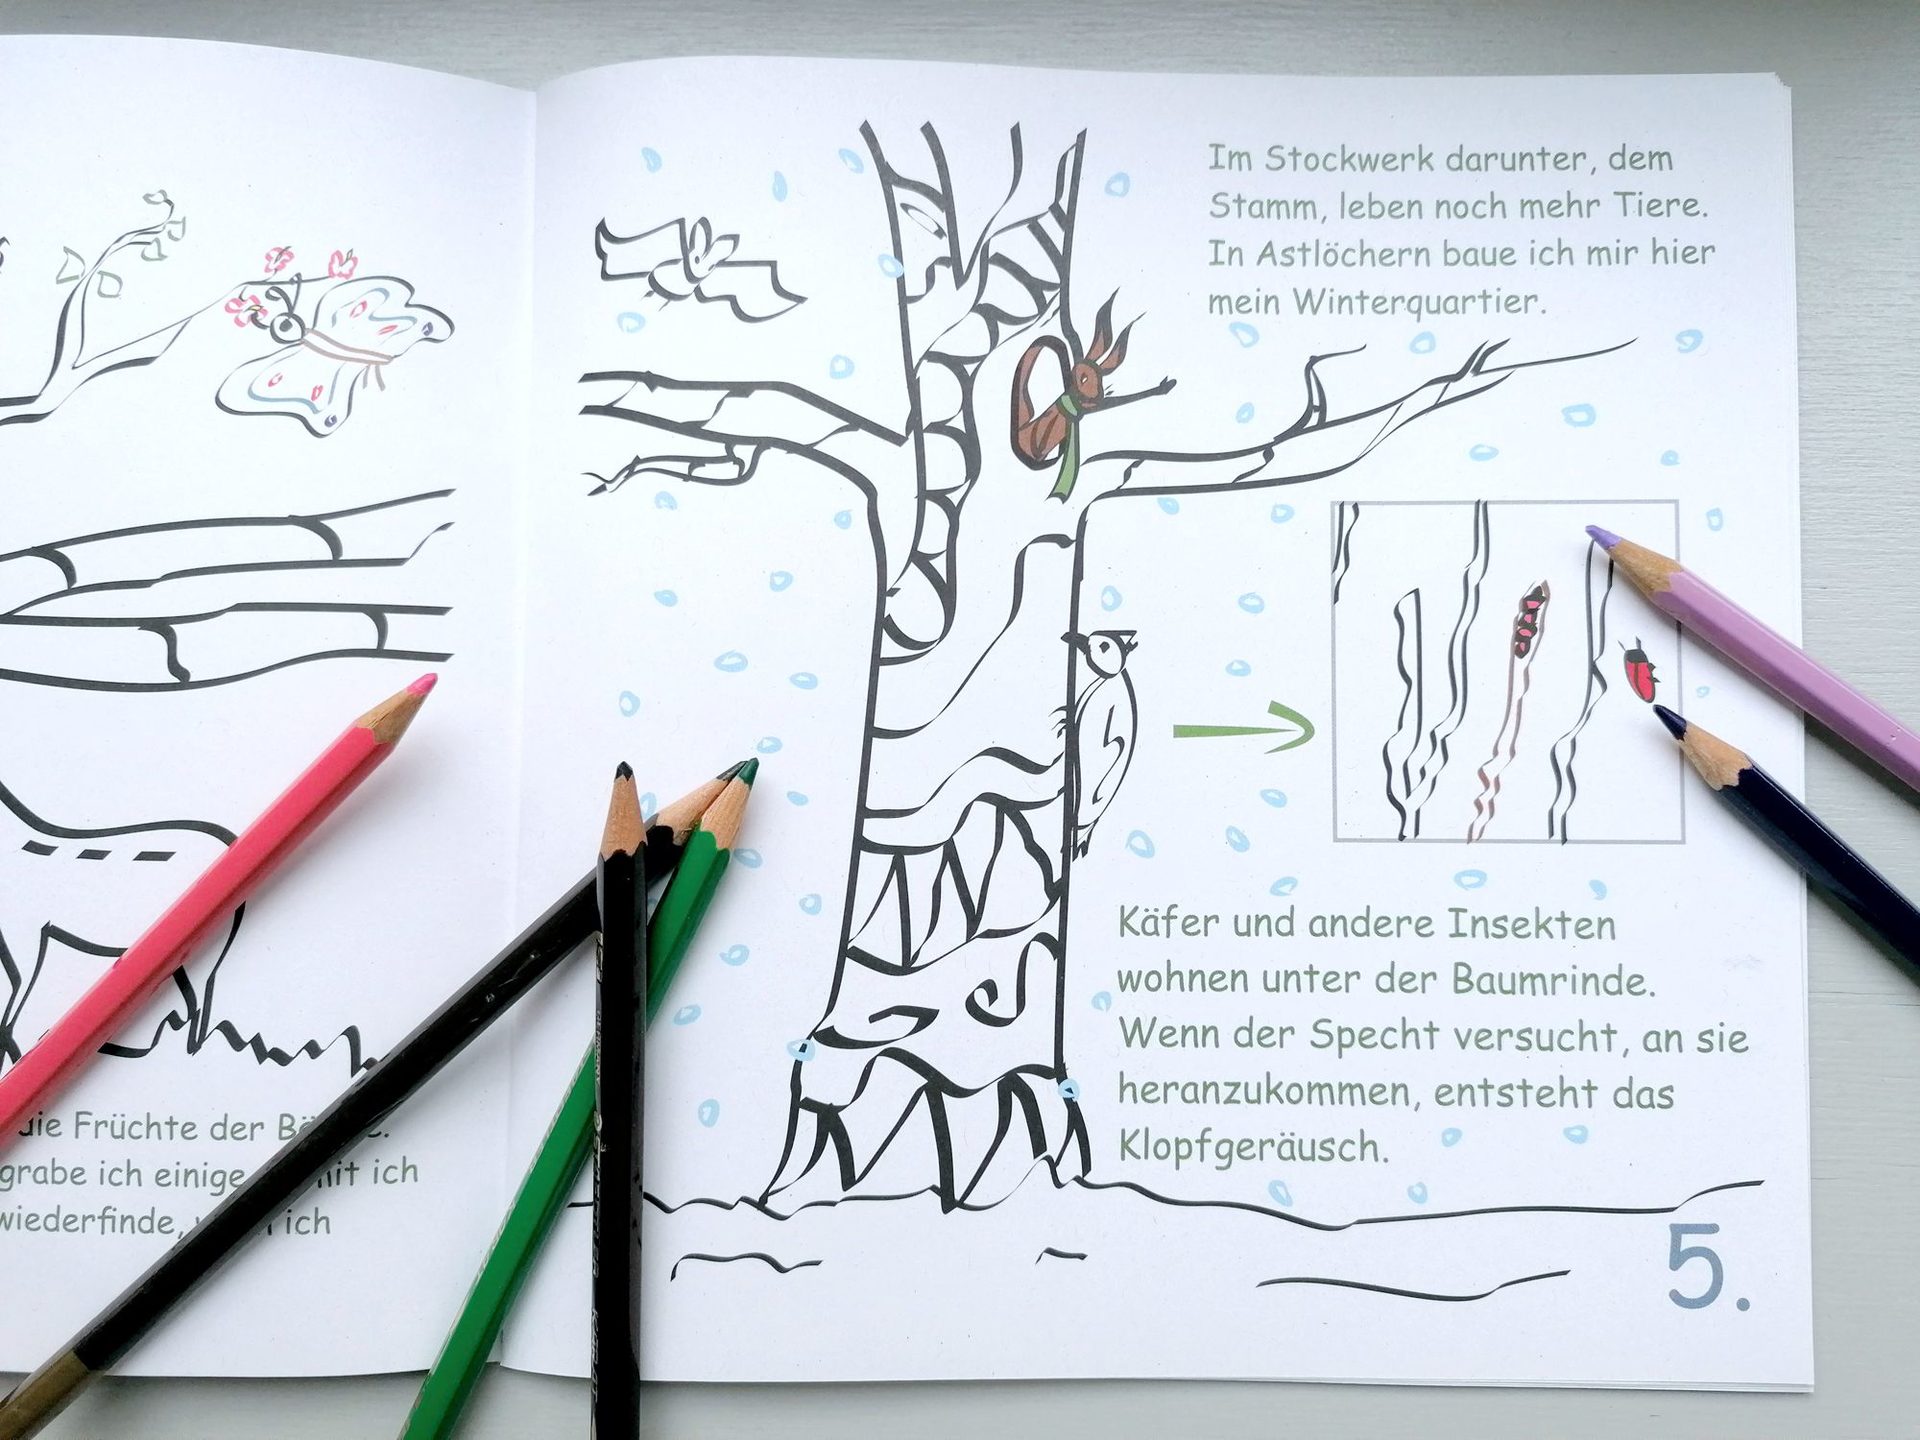 die Früchte der
grabe ich einige ich
wiederfinde, ich
Im Stockwerk darunter, dem
Stamm, leben noch mehr Tiere.
In Astlöchern baue ich mir hier
mein Winterquartier.
Käfer und andere Insekten
wohnen unter der Baumrinde.
Wenn der Specht versucht, an sie
heranzukommen, entsteht das
Klopfgeräusch.
5.